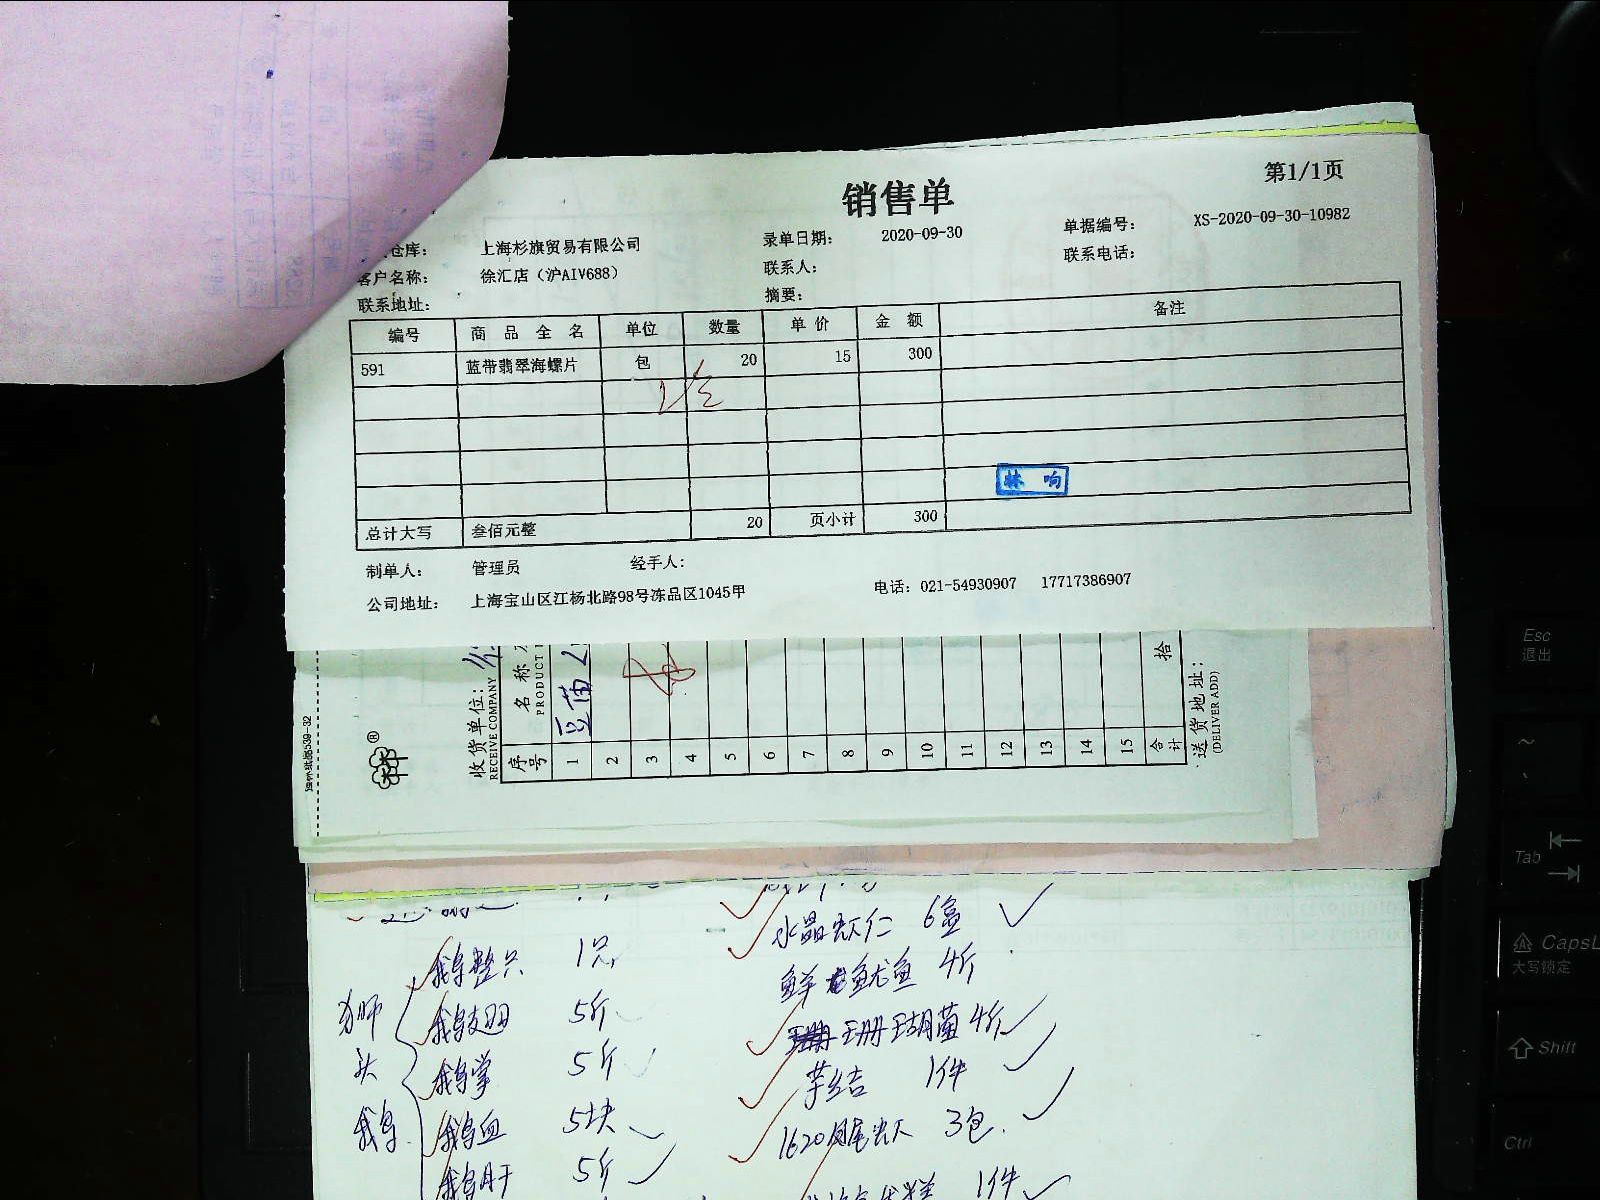 销售单
第1/1页
仓库： 上海杉旗贸易有限公司 录单日期： 2020-09-30 单据编号： XS-2020-09-30-10982
客户名称： 徐汇店（沪AIV688） 联系人： 联系电话：
联系地址： 摘要：
编号 商品全名 单位 数量 单价 金额 备注
591 蓝带翡翠海螺片 包 20 15 300
林响
总计大写 叁佰元整 20 页小计 300
制单人： 管理员 经手人：
公司地址： 上海宝山区江杨北路98号冻品区1045甲 电话：021-54930907 17717386907
收货单位：
RECEIVE COMPANY
序号 名称
PRODUCT
1 豆苗
2
3
4
5
6
7
8
9
10
11
12
13
14
15
合计 拾
送货地址：
(DELIVER ADD)
水晶虾仁 6盒
鹅整只 1只
鲜鱿鱼 4斤
狮头鹅
鹅翅 5斤
珊瑚菌 4斤
鹅掌 5斤
芋结 1件
鹅血 5块
1620凤尾虾 3包
鹅肝 5斤
1件
Esc
退出
~
Tab
CapsL
大写锁定
Shift
Ctrl